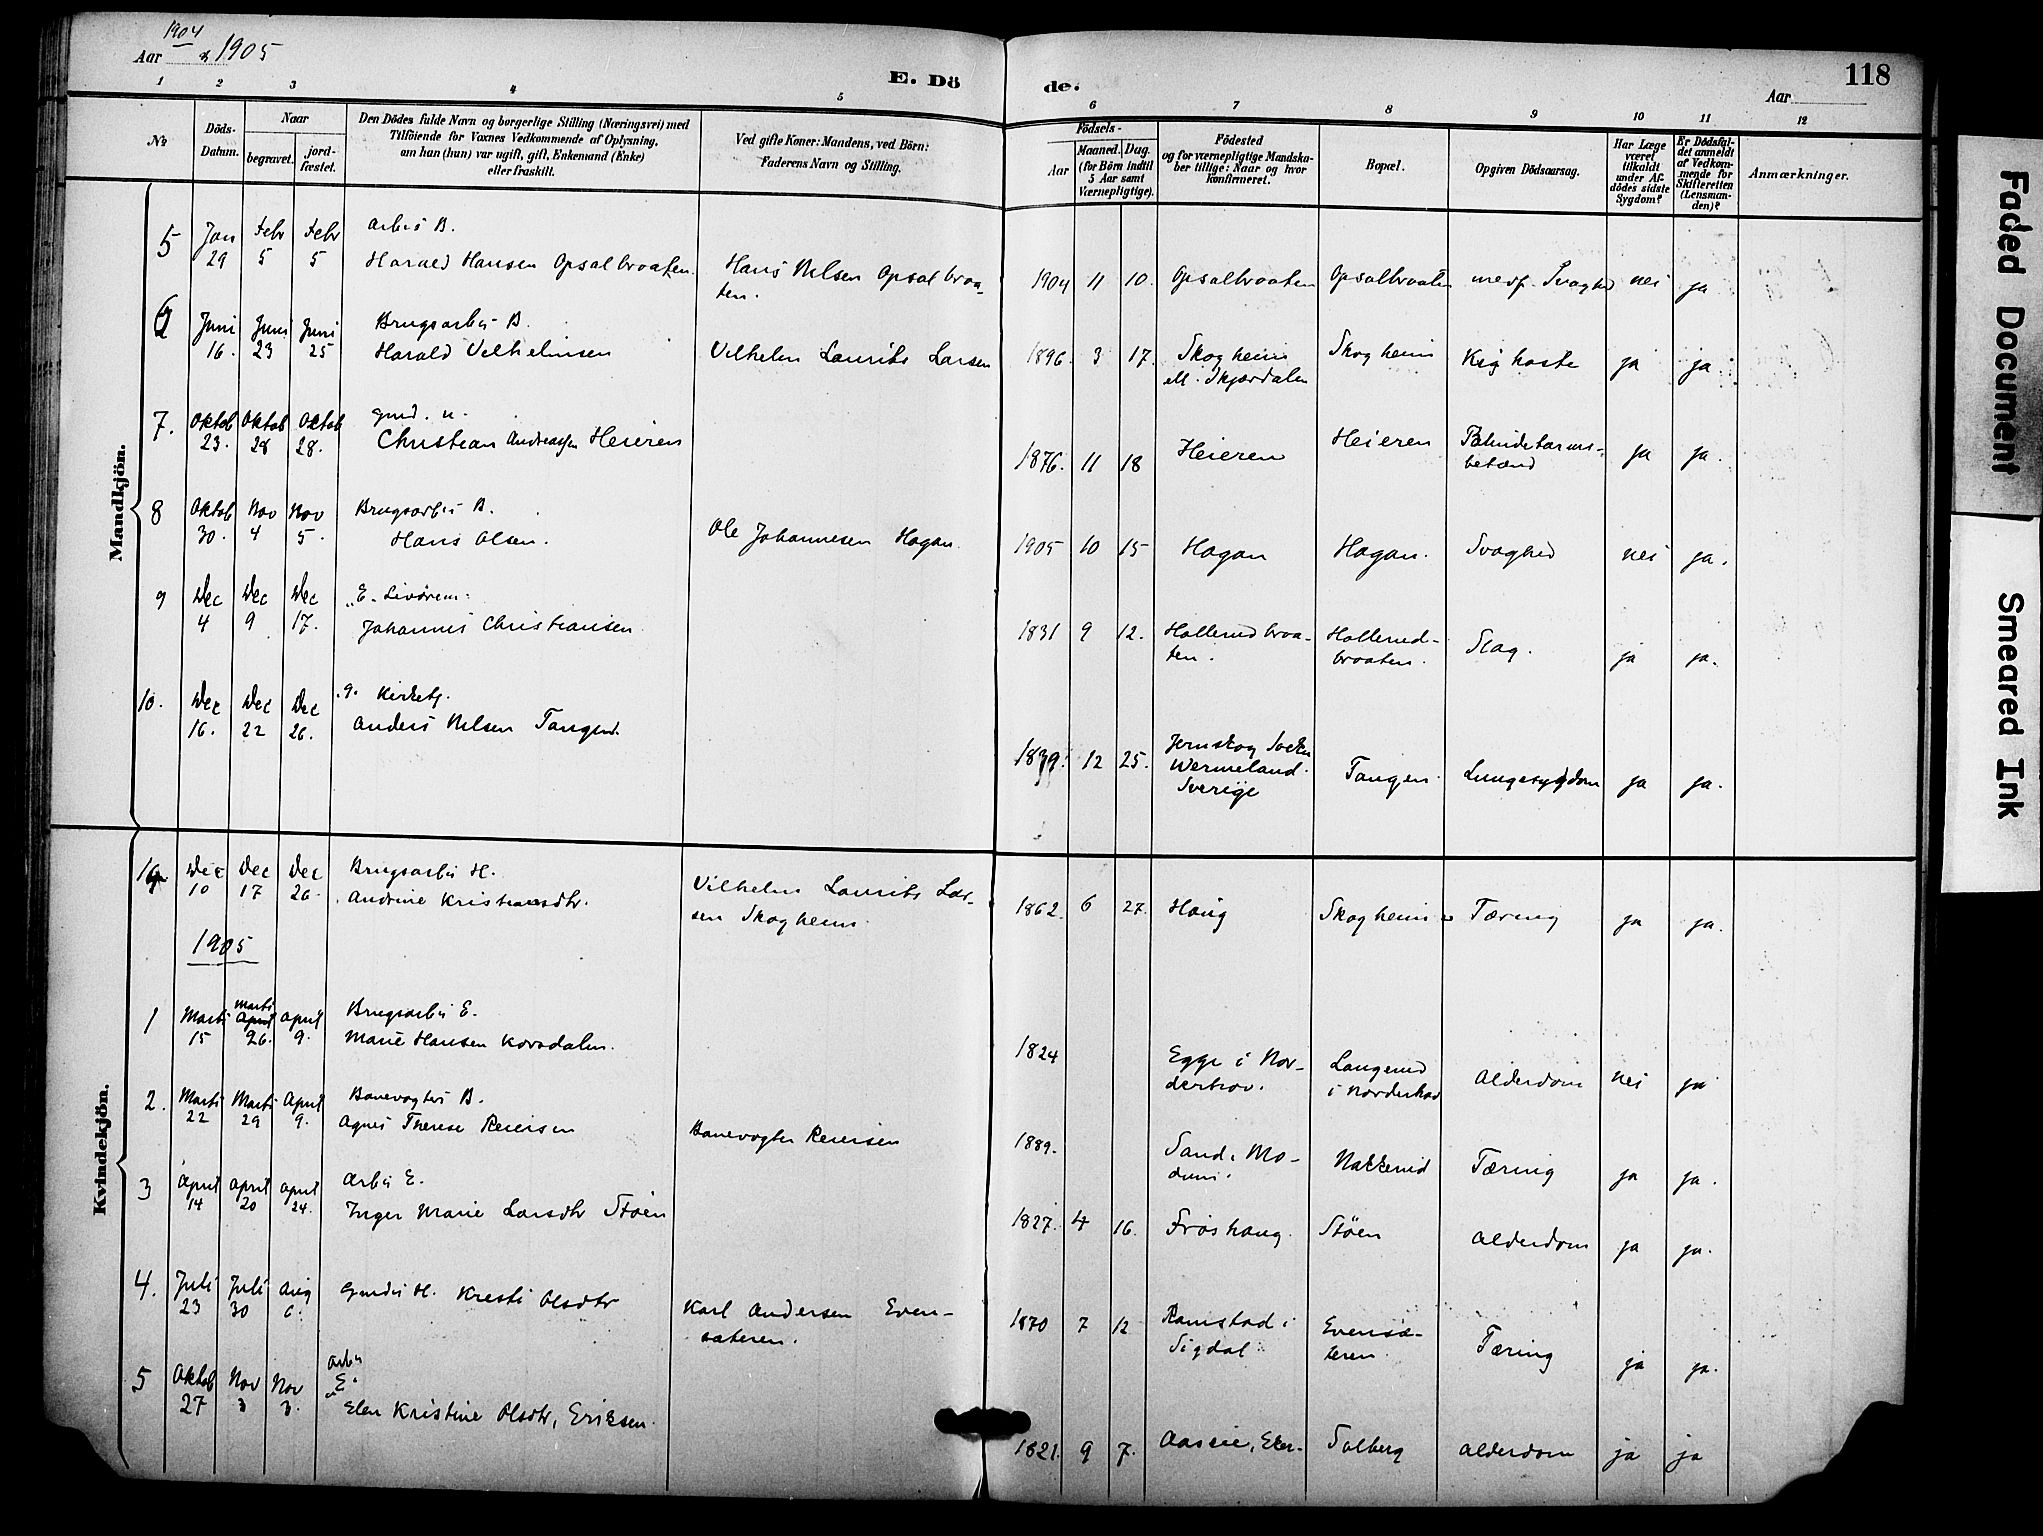 1904
Aar & 1905
E. Dö
de.
118
Aar
1 2 3 4 5 6 7 8 9 10 11 12
No
Döds-
Datum.
Naar
begravet.
jord-
fæstet.
Den Dödes fulde Navn og borgerlige Stilling (Næringsvei) med
Tilföiende for Voxnes Vedkommende af Oplysning,
om han (hun) var ugift, gift, Enkemand (Enke)
eller fraskilt.
Ved gifte Koner: Mandens, ved Börn:
Faderens Navn og Stilling.
Födsels-
Aar
Maaned.
Dag.
(for Börn indtil
5 Aar samt
Værnepligtige).
Födested
og for værnepligtige Mandska-
ber tillige: Naar og hvor
konfirmeret.
Bopæl.
Opgiven Dödsaarsag.
Har Læge
været
tilkaldt
under Af-
dödes sidste
Sygdom?
Er Dödsfal-
det anmeldt
af Vedkom-
mende for
Skifteretten
(Lensman-
den)?
Anmærkninger.
Mandkjön.
5 Jan 29 Febr 5 Febr 5 Arbs B.
Harald Hansen Opsalbraaten. Hans Nilsen Opsalbraa-
ten. 1904 11 10. Opsalbraaten Opsalbraaten medf. Svaghed nei ja
6 Juni 16. Juni 23 Juni 25 Brugsarbs B.
Harald Vilhelmsen Vilhelm Laurits Larsen 1896. 3 17. Skogheim
ell. Skjærdalen Skogheim Kighoste ja ja
7. Oktob 23. Oktob 28 Oktob 28. Gmd. u.
Christian Andreassen Heieren 1876. 11 18 Heieren Heieren Blindetarms-
betænd ja ja.
8 Oktob 30. Nov 4 Nov 5. Brugsarbs B.
Hans Olsen. Ole Johannesen Hagan. 1905 10 15 Hagan Hagan. Svaghed nei ja.
9 Dec 4 Dec 9 Dec 17. "E. Livörem:
Johannes Christiansen. 1831 9 12. Hollerudbraa-
ten. Hollerud-
braaten. Slag. ja ja.
10. Dec 16. Dec 22 Dec 26. g. Kirketj.
Anders Nilsen Tangen. 1839. 12 25. Jernskog Socken
Wermeland.
Sverige Tangen. Lungesygdom ja ja.
Kvindekjön.
Dec 10 Dec 17 Dec 26. Brugsarbs H.
Andrine Kristiansdtr. Vilhelm Laurits Lar-
sen Skogheim. 1862. 6 27. Haug Skogheim Tæring ja ja.
1905
1 Marts 15 Marts April 26. April 9. Brugsarbs E.
Marie Hansen Korsdalen. 1824 Egge i Nor-
derhov. Langerud
i Norderhov Alderdom nei ja
2. Marts 22 Marts 29 April 9. Banevogters B.
Agnes Therese Reiersen Banevogter Reiersen 1889. Sand i Mo-
dum. Nakkerud Tæring ja ja.
3 April 14 April 20 April 24. Arbs E.
Inger Marie Larsdtr Stöen 1827. 4 16. Fröshaug. Stöen Alderdom ja ja.
4. Juli 23 Juli 30 Aug 6. Gmds H. Kristi Olsdtr Karl Andersen Even-
sæteren. 1870 7 12 Ramstad i
Sigdal Evensæ-
teren. Tæring ja ja.
5 Oktob 27 Nov 3 Nov 3. Arbs
"E"
Elen Kristine Olsdtr, Eriksen. 1821. 9 7. Solberg Alderdom ja ja
Faded Document
Smeared Ink